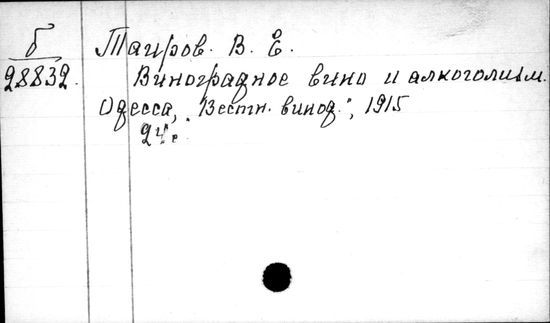 б
28832.
Таиров. В. Е.
Виноградное вино и алкоголизм.
Одесса, "Вестн. винод.", 1915
24 с.